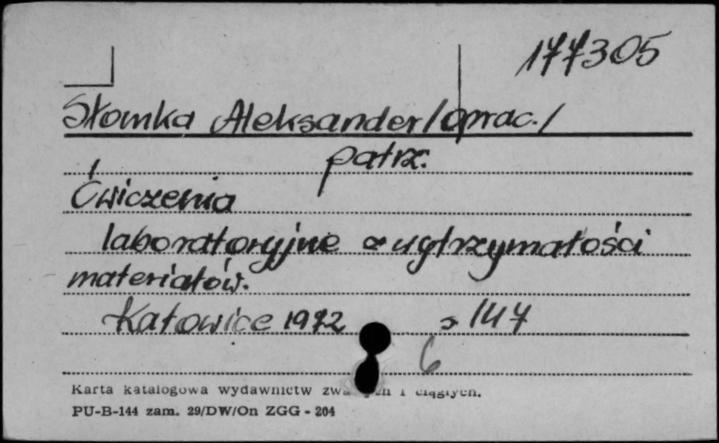 177305
Słomka Aleksander/oprac./
patrz:
Ćwiczenia
laboratoryjne z wytrzymałości
materiałów.
Katowice 1972 s 147
6
Karta katalogowa wydawnictw i ciągłych.
PU-B-144 zam. 29/DW/On ZGG - 204